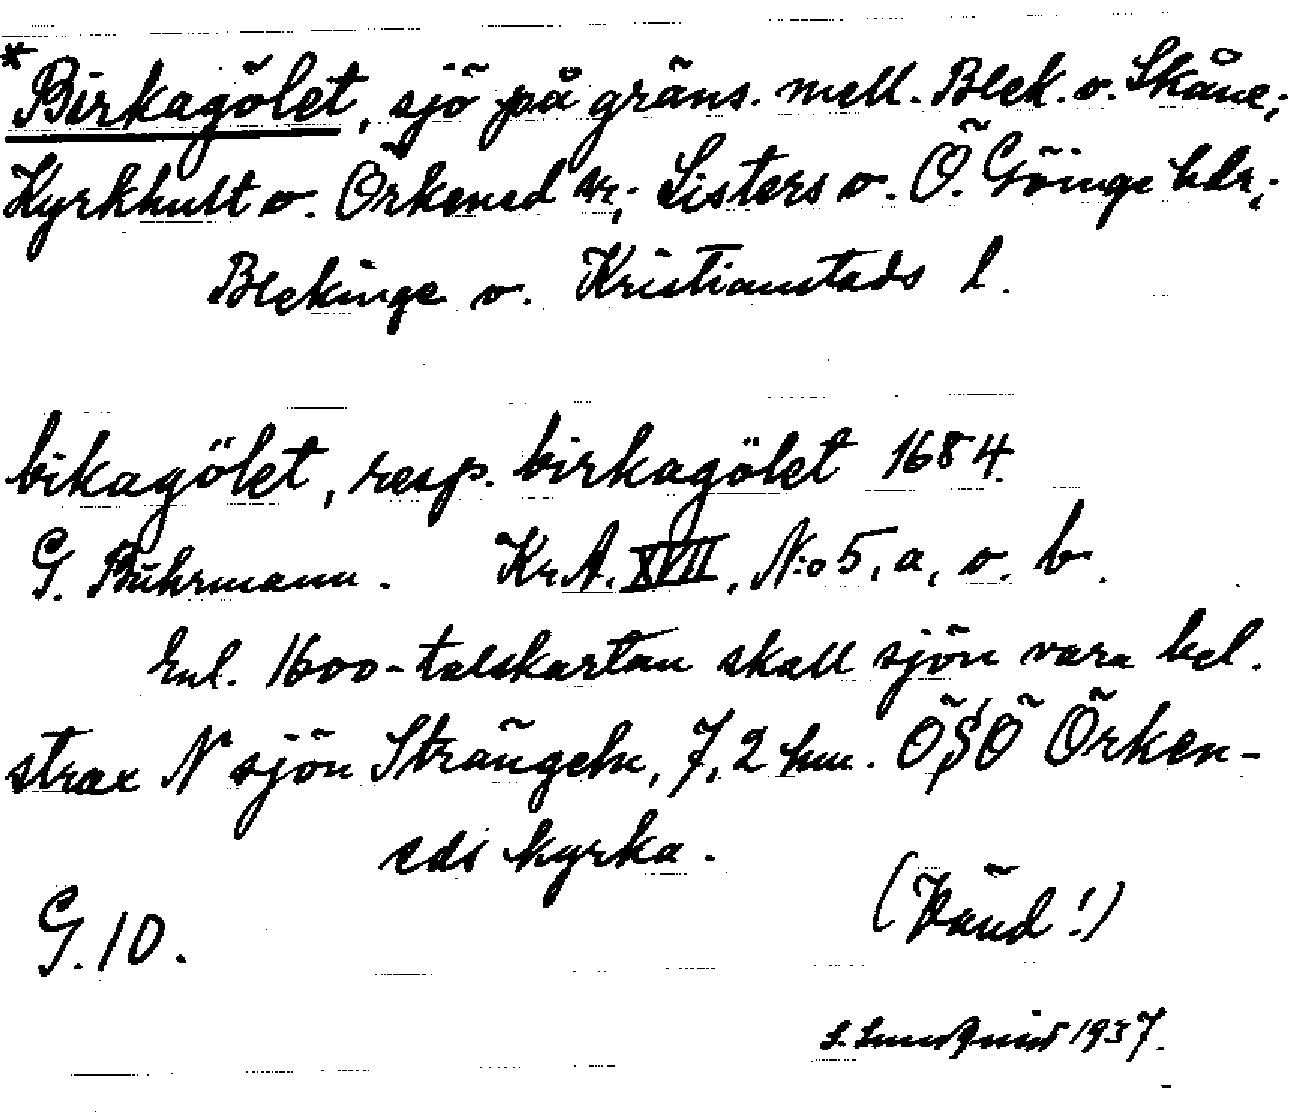 *Birkagölet, sjö på gräns. mell. Blek. o. Skåne;
Kyrkhult o. Örkened sn; Listers o. Ö. Göinge hdr;
Blekinge o. Kristianstads l.
bikagölet, resp. birkagölet 1684.
G. Buhrmann. Kr.A. XVII, N:o 5, a, o. b.
Enl. 1600-talskartan skall sjön vara bel.
strax N sjön Strångeln, 7,2 km. ÖSÖ Örken-
eds kyrka.
(Vänd!)
G. 10.
S. Lundquist 1937.